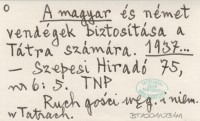 A magyar és német
vendégek biztosítása a
Tátra számára. 1937...
— Szepesi Hiradó 75,
nr 6: 5. TNP
Ruch gości węg. i niem.
w Tatrach.